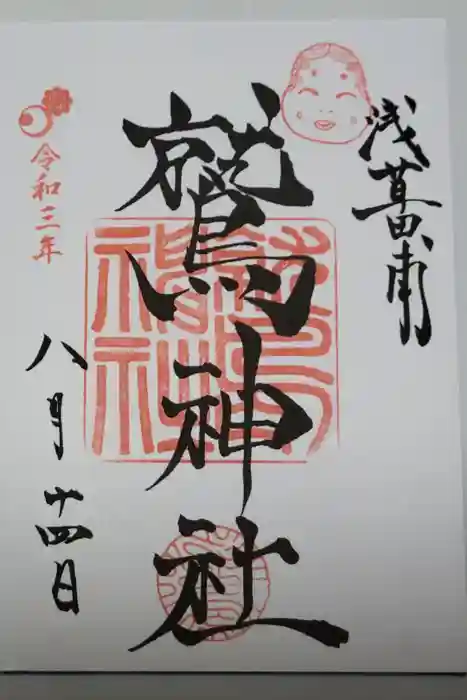 浅草田甫
鷲神社
令和三年
八月十四日